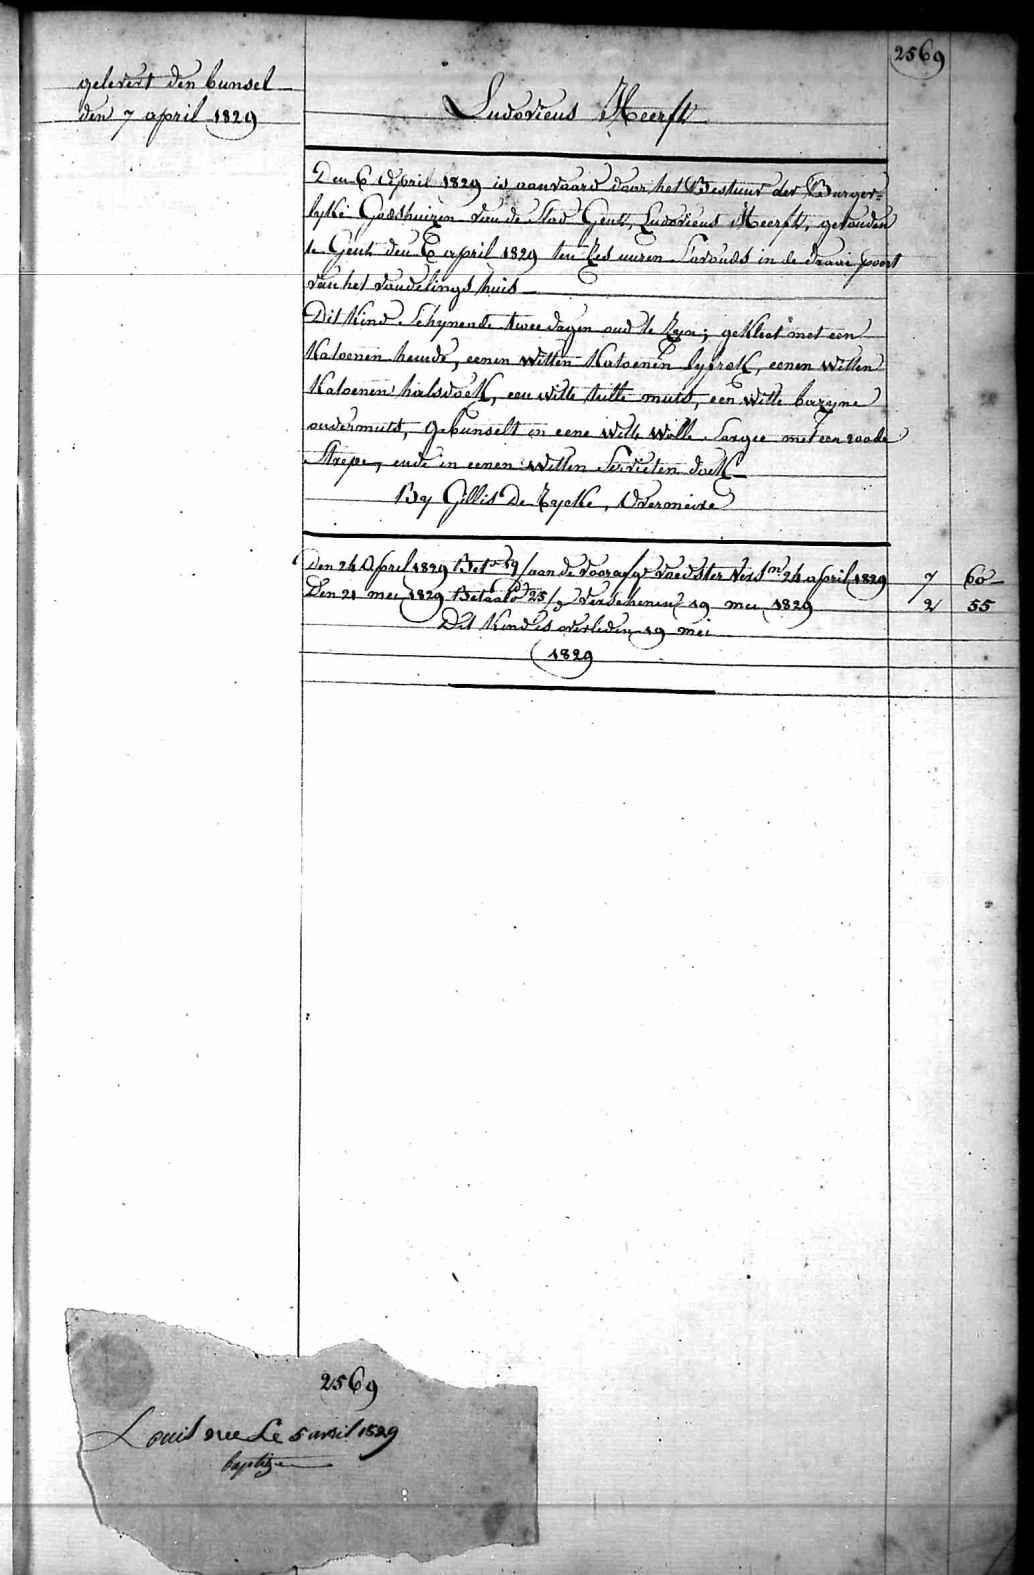 2569
gelevert den bunsel
den 7 april 1829
Ludovicus Heerft
Den 6 April 1829 is aanvaard door het Bestuur der Burger=
lyke Godshuizen van de Stad Gent, Ludovicus Heerft, gevonden
te Gent den 6 april 1829 ten zes uuren s'avonds in de draai poort
van het vondelings huis
Dit Kind schynende twee dagen oud te zyn; gekleet met een
Katoenen hemde, eenen witten Katoenen lyfrok, eenen witten
Katoenen halsdoek, een witte tulle muts, een witte bazyne
ondermuts, gebunselt in eene witte wolle sargie met een roode
strepe, ende in eenen witten servieten doek
By Gillis De Rycke, Overmeire
Den 24 April 1829 Bet. 19/ aan de voorzeg voedster vers.n 24 april 1829 7 60
Den 21 mei 1829 Betaald 25/ verschenen 19 mei 1829 2 55
Dit Kind is overleden 19 mei
1829
2569
Louis née Le 5 avril 1829
baptize